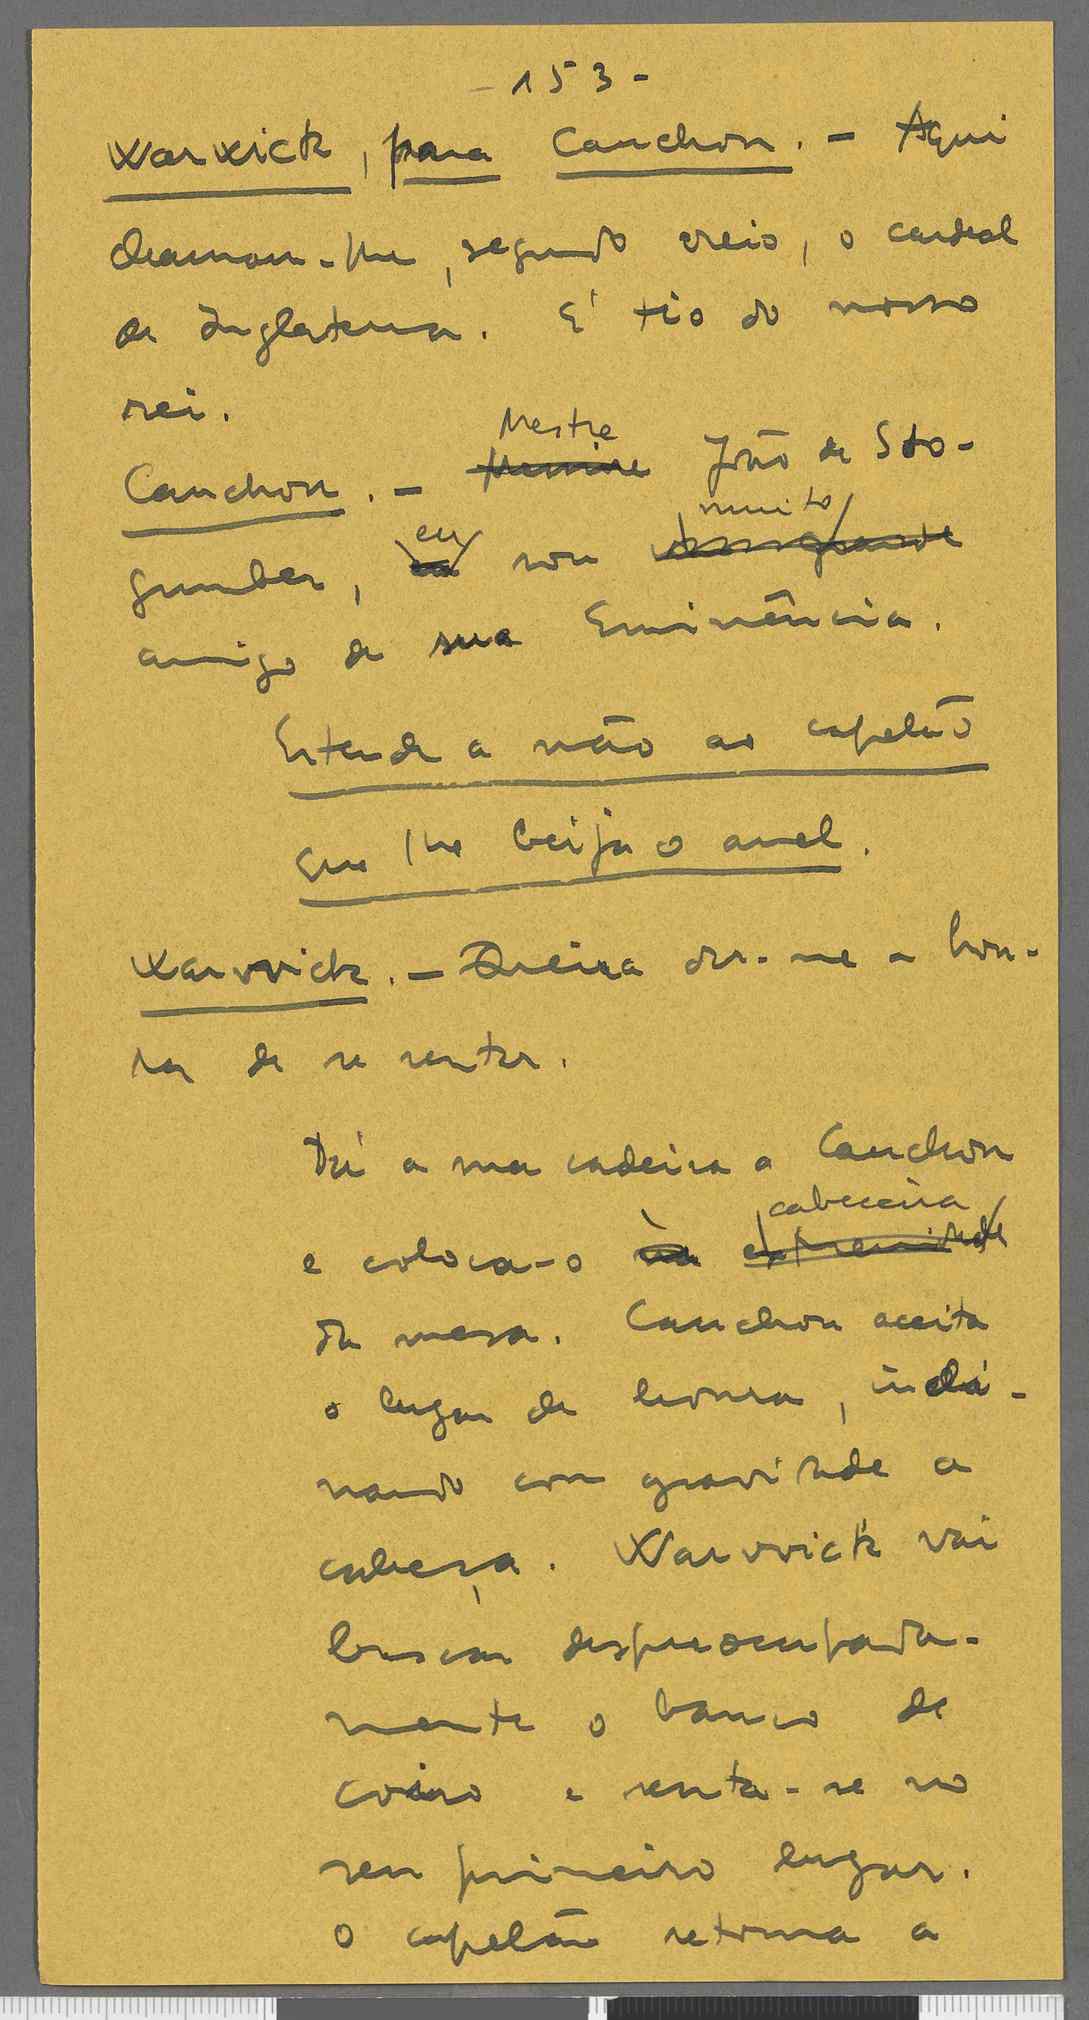 - 153 -
Warwick, para Cauchon. - Aqui
chamam-lhe, segundo creio, o cardeal
de Inglaterra. É tio do nosso
rei.
Mestre
Cauchon. - João de Sto-
eu muito
gumber, sou
amigo de sua Eminência.
Estende a mão ao capelão
que lhe beija o anel.
Warwick. - Queira dar-me a hon-
ra de se sentar.
Dá a sua cadeira a Cauchon
cabeceira
e coloca-o à extremidade
da mesa. Cauchon aceita
o lugar de honra, incli-
nando com gravidade a
cabeça. Warwick vai
buscar despreocupada-
mente o banco de
coiro e senta-se no
seu primeiro lugar.
O capelão retoma a